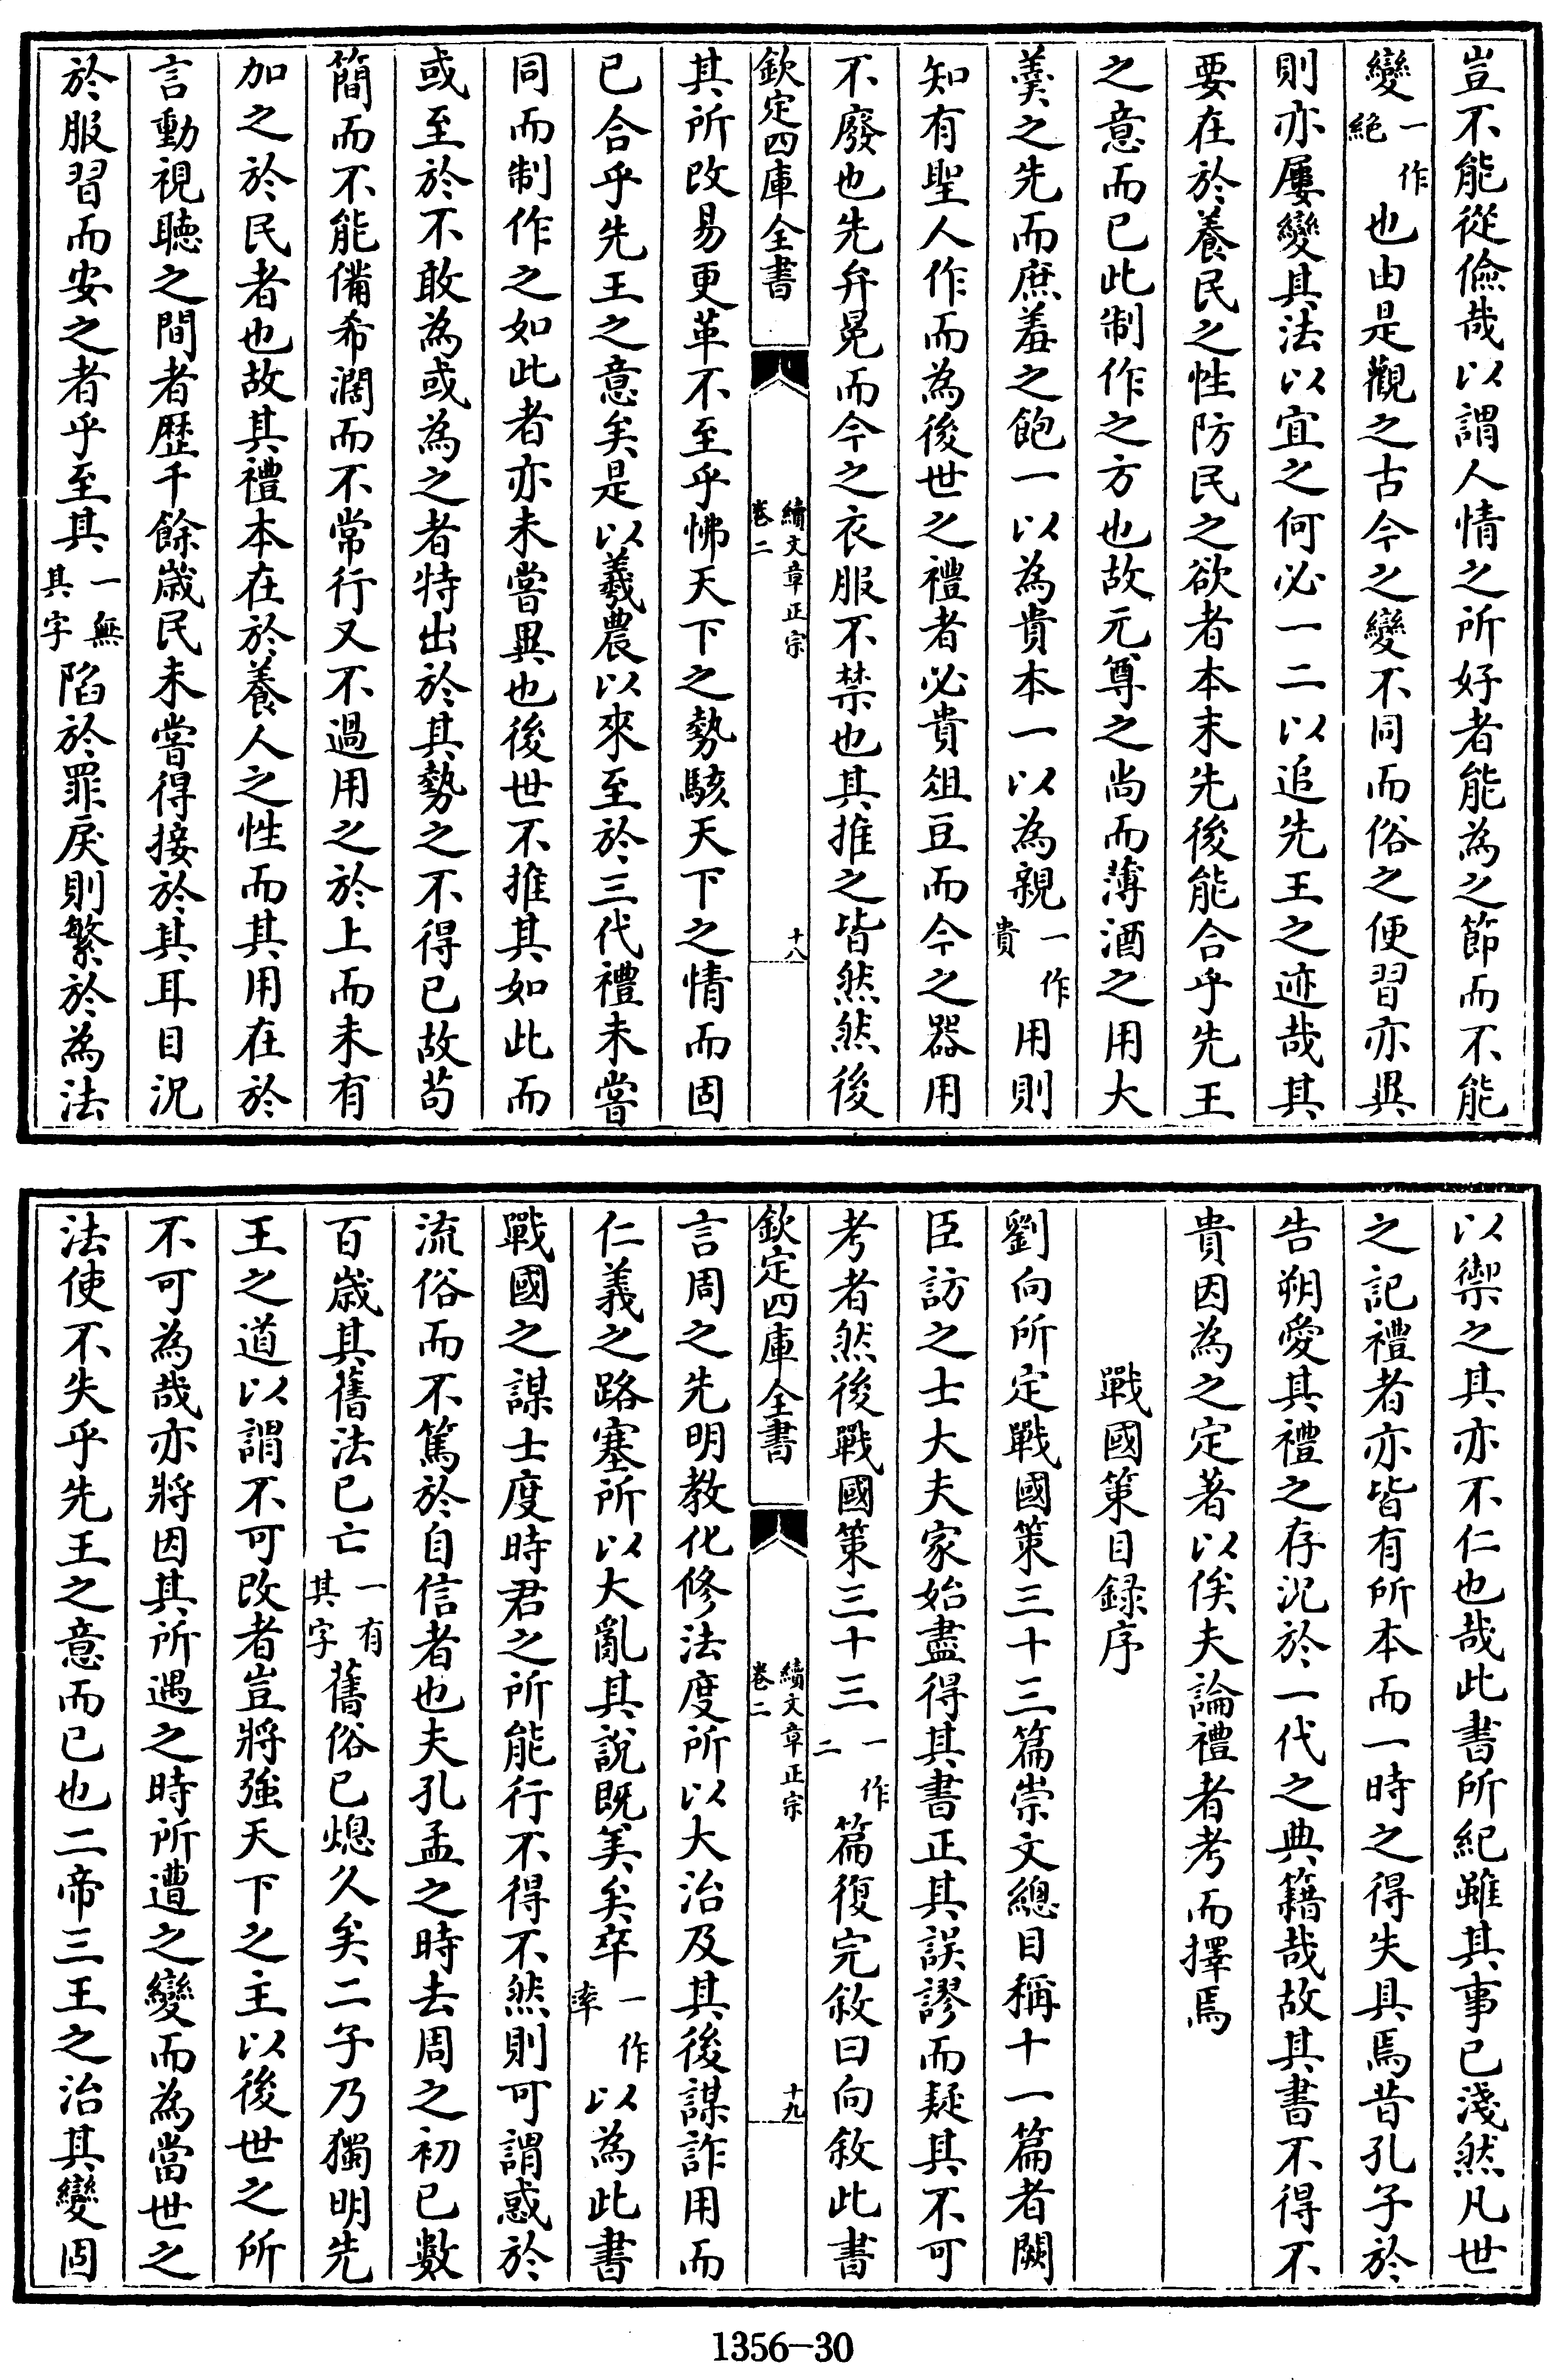 豈不能從儉哉以謂人情之所好者能為之節而不能
變一作絕也由是觀之古今之變不同而俗之便習亦異
則亦屢變其法以宜之何必一二以追先王之迹哉其
要在於養民之性防民之欲者本末先後能合乎先王
之意而已此制作之方也故元尊之尚而薄酒之用大
羹之先而庶羞之飽一以為貴本一以為親一作貴用則
知有聖人作而為後世之禮者必貴俎豆而今之器用
不廢也先弁冕而今之衣服不禁也其推之皆然然後
欽定四庫全書
續文章正宗
卷二
十八
其所改易更革不至乎怫天下之勢駭天下之情而固
已合乎先王之意矣是以羲農以來至於三代禮未嘗
同而制作之如此者亦未嘗異也後世不推其如此而
或至於不敢為或為之者特出於其勢之不得已故苟
簡而不能備希濶而不常行又不過用之於上而未有
加之於民者也故其禮本在於養人之性而其用在於
言動視聽之間者歷千餘歲民未嘗得接於其耳目況
於服習而安之者乎至其一無其字陷於罪戾則繁於為法
以禦之其亦不仁也哉此書所紀雖其事已淺然凡世
之記禮者亦皆有所本而一時之得失具焉昔孔子於
告朔愛其禮之存況於一代之典籍哉故其書不得不
貴因為之定著以俟夫論禮者考而擇焉
戰國策目録序
劉向所定戰國策三十三篇崇文總目稱十一篇者闕
臣訪之士大夫家始盡得其書正其誤謬而疑其不可
考者然後戰國策三十三一作二篇復完敘曰向敘此書
欽定四庫全書
續文章正宗
卷二
十九
言周之先明教化修法度所以大治及其後謀詐用而
仁義之路塞所以大亂其說既美矣卒一作率以為此書
戰國之謀士度時君之所能行不得不然則可謂惑於
流俗而不篤於自信者也夫孔孟之時去周之初已數
百歲其舊法已亡一有其字舊俗已熄久矣二子乃獨明先
王之道以謂不可改者豈將強天下之主以後世之所
不可為哉亦將因其所遇之時所遭之變而為當世之
法使不失乎先王之意而已也二帝三王之治其變固
1356-30